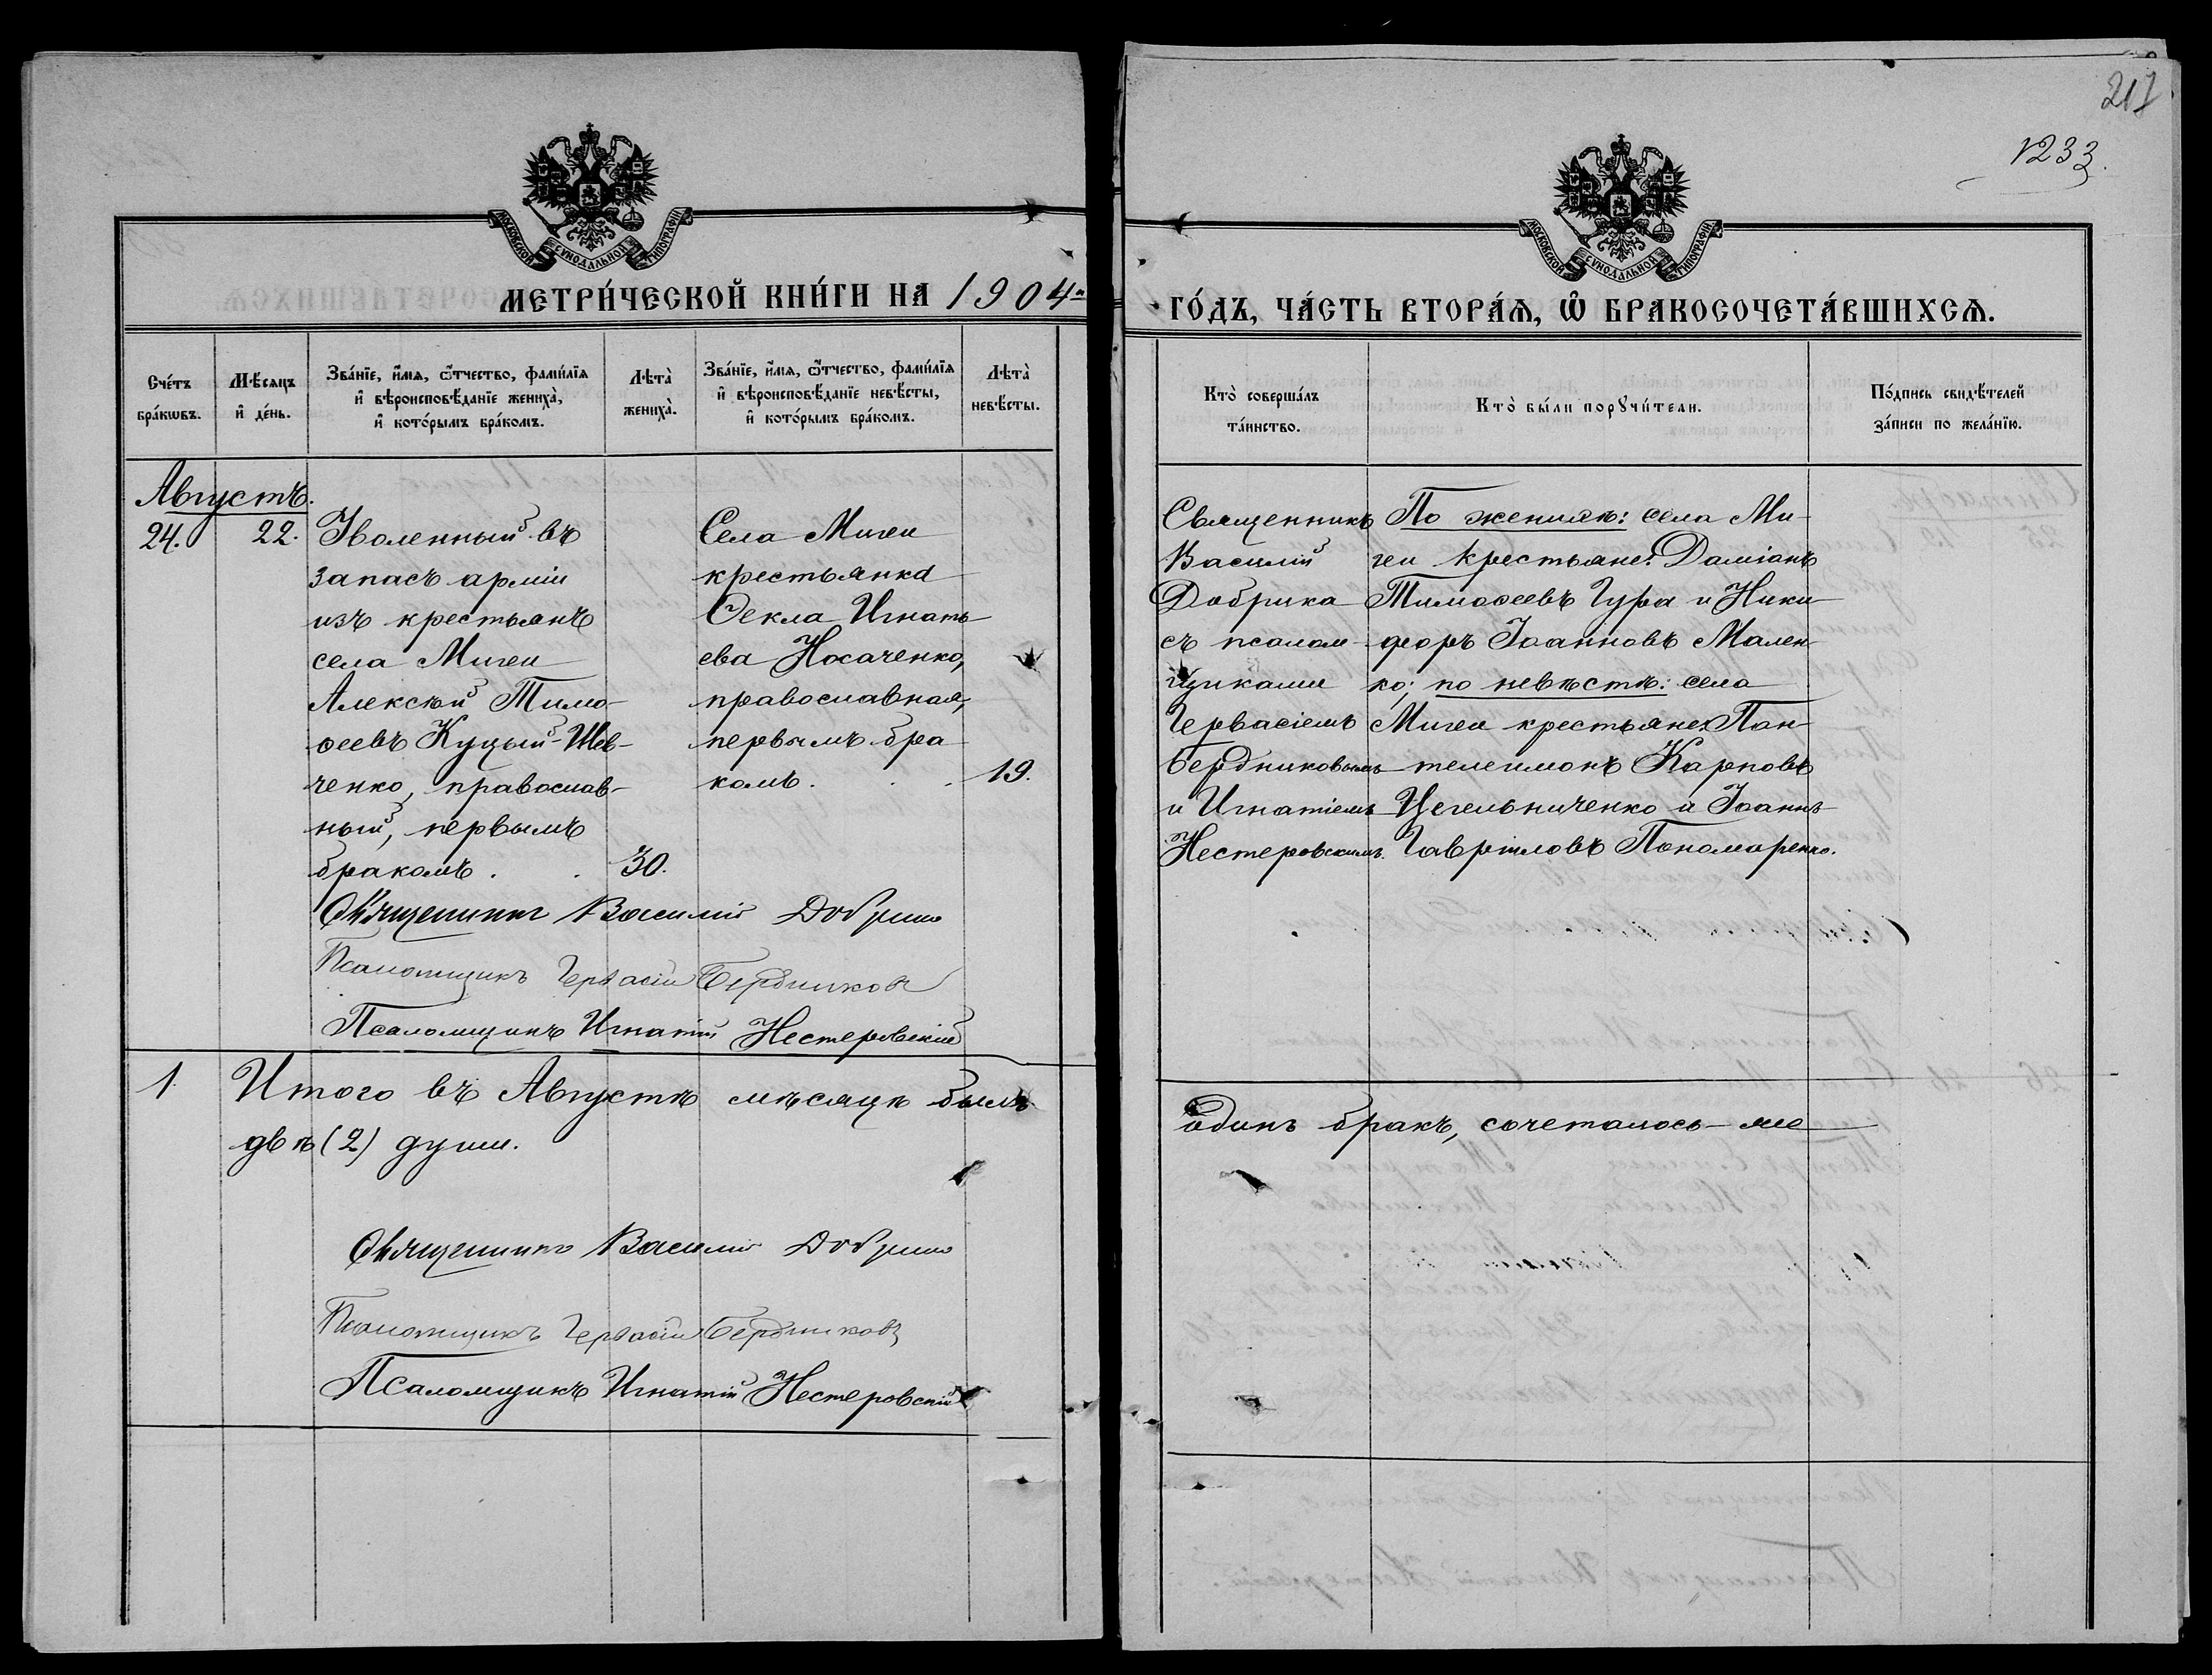 217
1233.
МОСКОВСКОЙ СѴНОДАЛЬНОЙ ТИПОГРАФІИ
МОСКОВСКОЙ СѴНОДАЛЬНОЙ ТИПОГРАФІИ
МЕТРИ́ЧЕСКОЙ КНИ́ГИ НА 1904й
ГО́ДЪ, ЧА́СТЬ ВТОРА́Ѧ, Ѽ БРАКОСОЧЕТА́ВШИХСѦ.
Сче́тъ
бра́кѡвъ.
Мѣ́сяцъ
и҆ де́нь.
Зва́нїе, и҆́мѧ, ѻ҆́тчество, фами́лїѧ
и҆ вѣроисповѣ́данїе жениха̀,
и҆ кото́рымъ бра́комъ.
Лѣта̀
жениха̀.
Зва́нїе, и҆́мѧ, ѻ҆́тчество, фами́лїѧ
и҆ вѣроисповѣ́данїе невѣ́сты,
и҆ кото́рымъ бра́комъ.
Лѣта̀
невѣ́сты.
Кто̀ соверша́лъ
та́инство.
Кто̀ бы́ли порꙋчи́тели.
По́дпись свидѣ́телей
за́писи по жела́нїю.
Августъ.
24.
22.
Уволенный въ
запасъ арміи
изъ крестьянъ
села Мигеи
Алексѣй Тимо-
ѳеевъ Куцый-Шев-
ченко, православ-
ный, первымъ
бракомъ . . 30.
Села Мигеи
крестьянка
Ѳекла Игнать-
ева Носаченко,
православная,
первымъ бра
комъ. . . 19.
Священникъ
Василій
Добрика
съ псалом-
щиками
Гервасіемъ
Бердниковымъ
и Игнатіемъ
Нестеровскимъ.
По женихѣ: села Ми-
геи крестьяне: Даміанъ
Тимоѳеевъ Гура и Ники-
форъ Іоанновъ Мален-
ко; по невѣстѣ: села
Мигеи крестьяне: Пан-
телеимонъ Карповъ
Цегельниченко и Іоаннъ
Гавріиловъ Пономаренко.
Священникъ Василій Добрика
Псаломщикъ Гервасій Бердниковъ
Псаломщикъ Игнатій Нестеровскій
1. Итого въ Августѣ мѣсяцѣ былъ
одинъ бракъ, сочеталось-же
двѣ (2) души.
Священникъ Василій Добрика
Псаломщикъ Гервасій Бердниковъ
Псаломщикъ Игнатій Нестеровскій